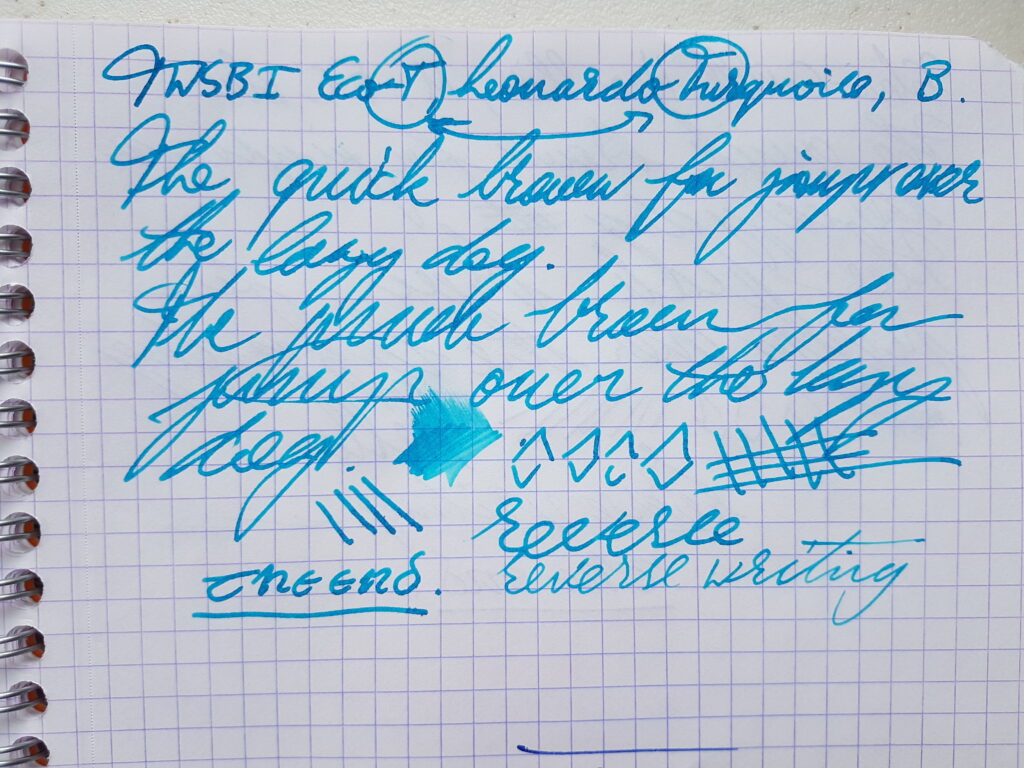 TWSBI Eco-T, Leonardo Turquoise, B.
The quick brown fox jumps over
the lazy dog.
The quick brown fox
jumps over the lazy
dog.
Reverse
Reverse writing
THE END.